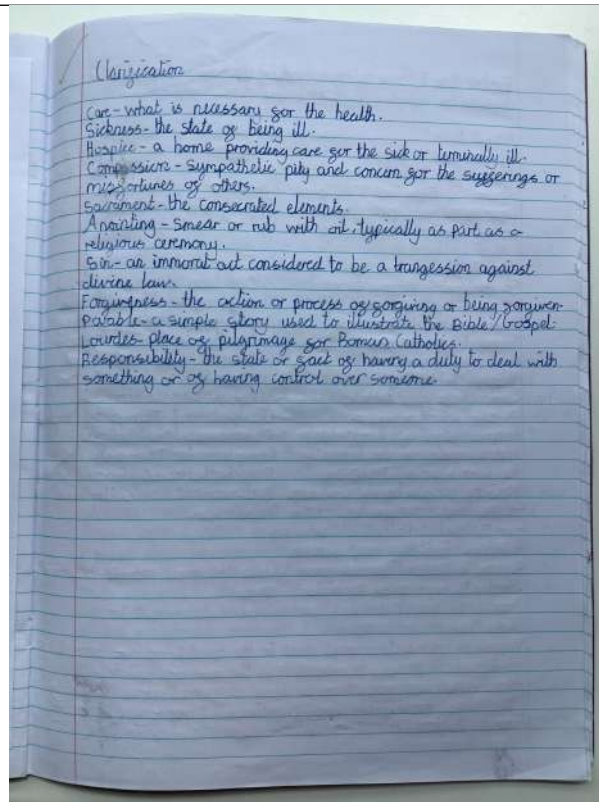 Clarification
Care - what is necessary for the health.
Sickness - the state of being ill.
Hospice - a home providing care for the sick or terminally ill.
Compassion - sympathetic pity and concern for the sufferings or
misfortunes of others.
Sacrament - the consecrated elements.
Anointing - smear or rub with oil, typically as part as a
religious ceremony.
Sin - an immoral act considered to be a trangession against
divine law.
Forgiveness - the action or process of forgiving or being forgiven.
Parable - a simple story used to illustrate the Bible/Gospel.
Lourdes - place of pilgrimage for Roman Catholics.
Responsibility - the state or fact of having a duty to deal with
something or of having control over someone.